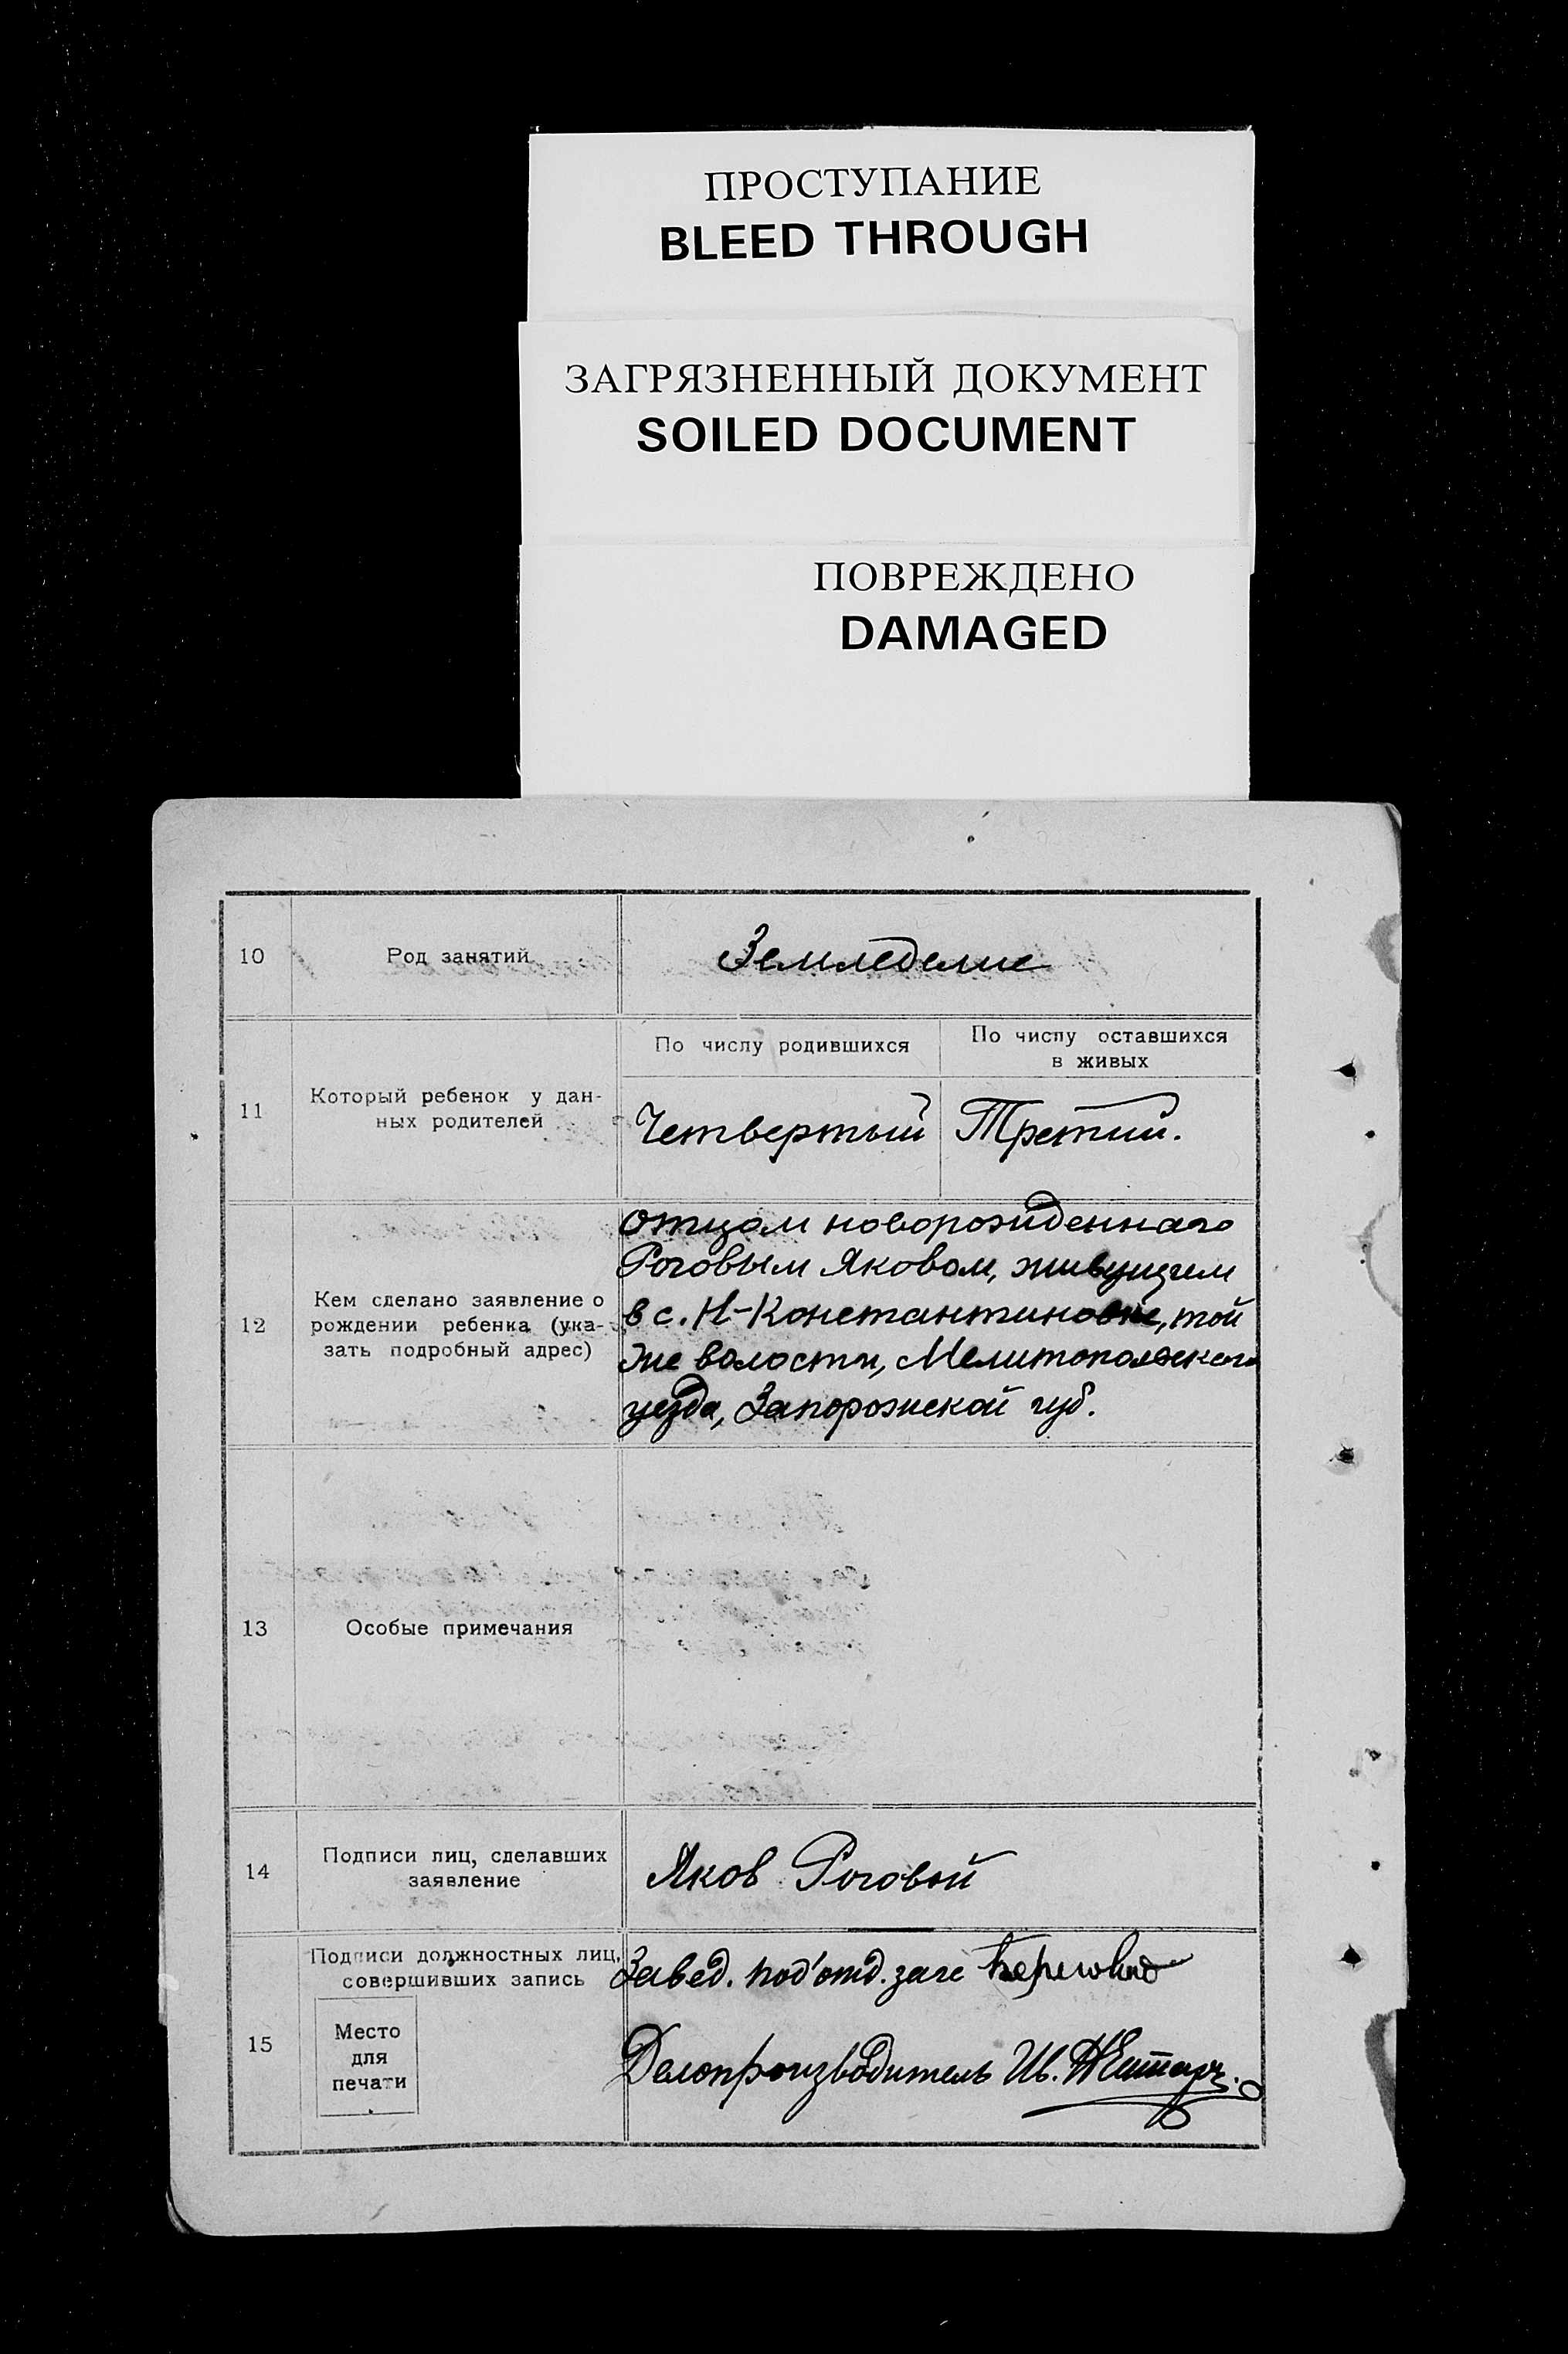 ПРОСТУПАНИЕ
BLEED THROUGH
ЗАГРЯЗНЕННЫЙ ДОКУМЕНТ
SOILED DOCUMENT
ПОВРЕЖДЕНО
DAMAGED
10
Род занятий
Земледелие
11
Который ребенок у дан-
ных родителей
По числу родившихся
По числу оставшихся
в живых
Четвертый
Третий.
12
Кем сделано заявление о
рождении ребенка (ука-
зать подробный адрес)
отцом новорожденнаго
Роговым Яковом, живущим
в с. Н-Константиновке, той
же волости, Мелитопольского
уезда, Запорожской губ.
13
Особые примечания
14
Подписи лиц, сделавших
заявление
Яков Роговой
15
Подписи должностных лиц,
совершивших запись
Место
для
печати
Завед. под'отд. загс
Делопроизводитель Ив.